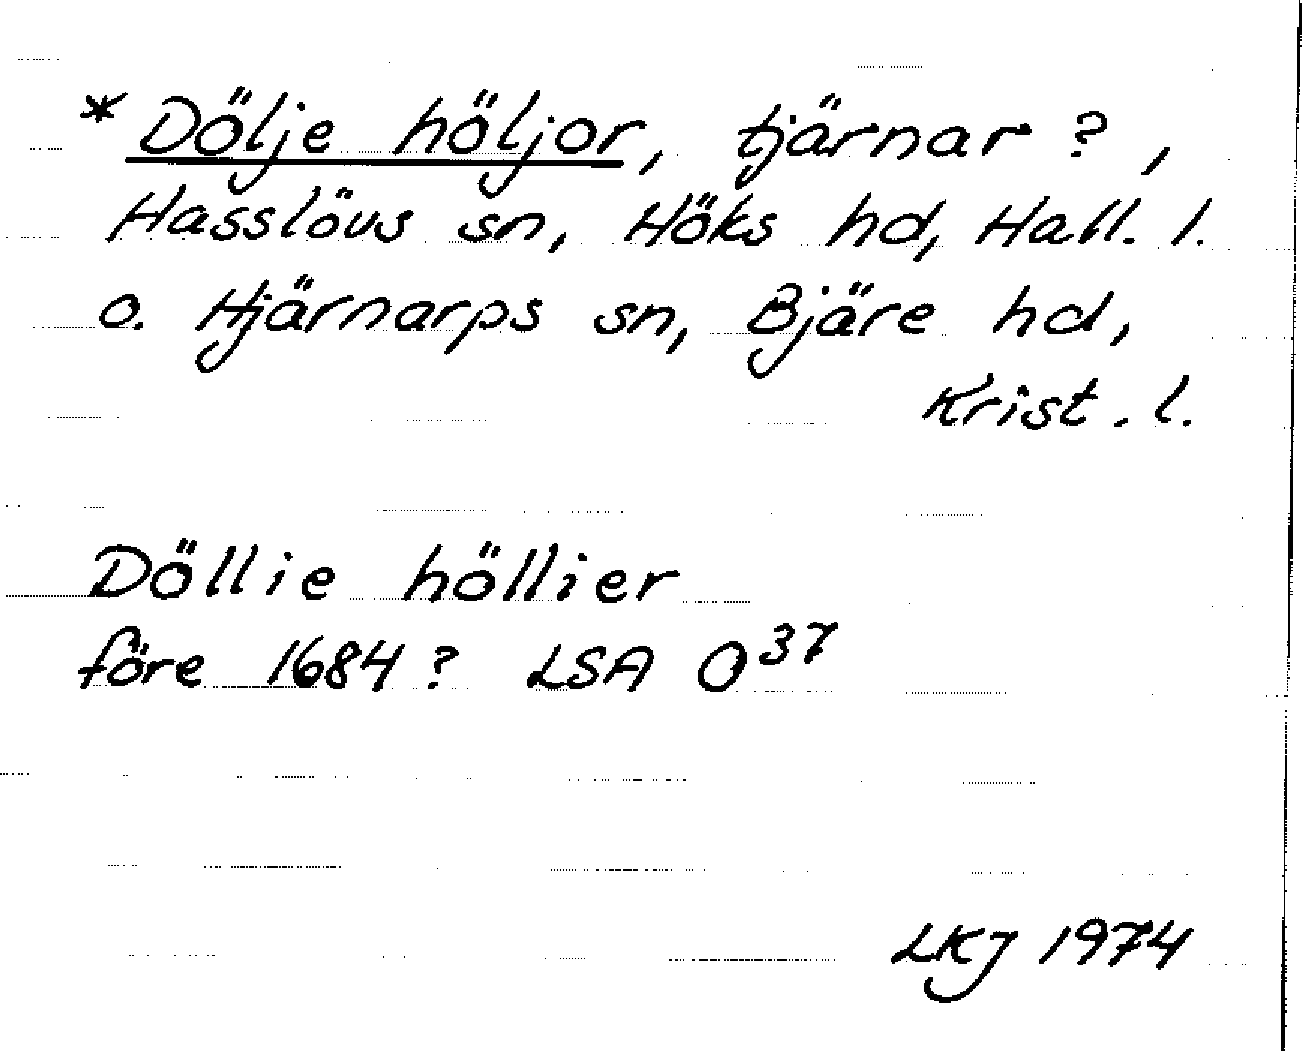 * Dölje höljor, tjärnar ?,
Hasslövs sn, Höks hd, Hall. l.
o. Hjärnarps sn, Bjäre hd,
Krist. l.
Döllie höllier
före 1684? LSA O³⁷
LKJ 1974